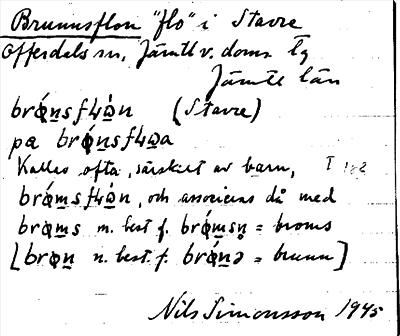 Brunnsflon "flo" i Stavre
Offerdals sn, Jämtl v. doms Tg
Jämtl län
brǿn̲sfɬɷ̲́n (Stavre)
pa brǿn̲sfɬɷ̲a
Kallas ofta, särskilt av barn, I 182
brǿm̲sfɬɷ̲́n, och associeras då med
brøm̲s m. best f. brǿm̲sn̥ = broms
[brøn̲ n. best. f. brǿn̲ə = brunn]
Nils Simonsson 1945